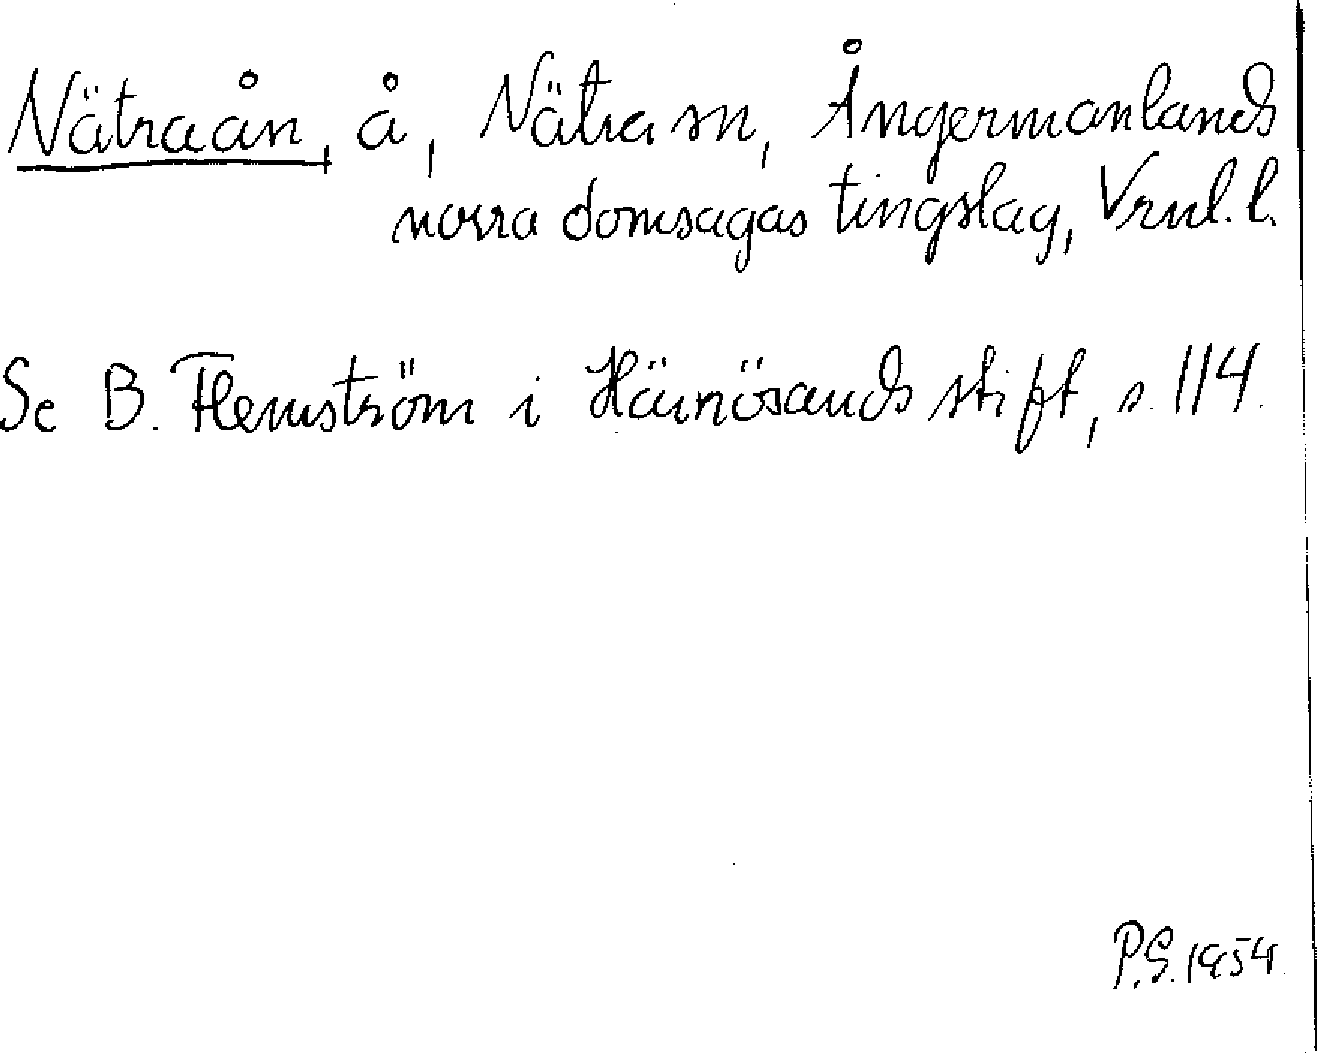 Nätraån, å, Nätra sn, Ångermanlands
norra domsagas tingslag, Vrnl. l.
Se B. Flemström i Härnösands stift, s. 114.
P.S. 1954